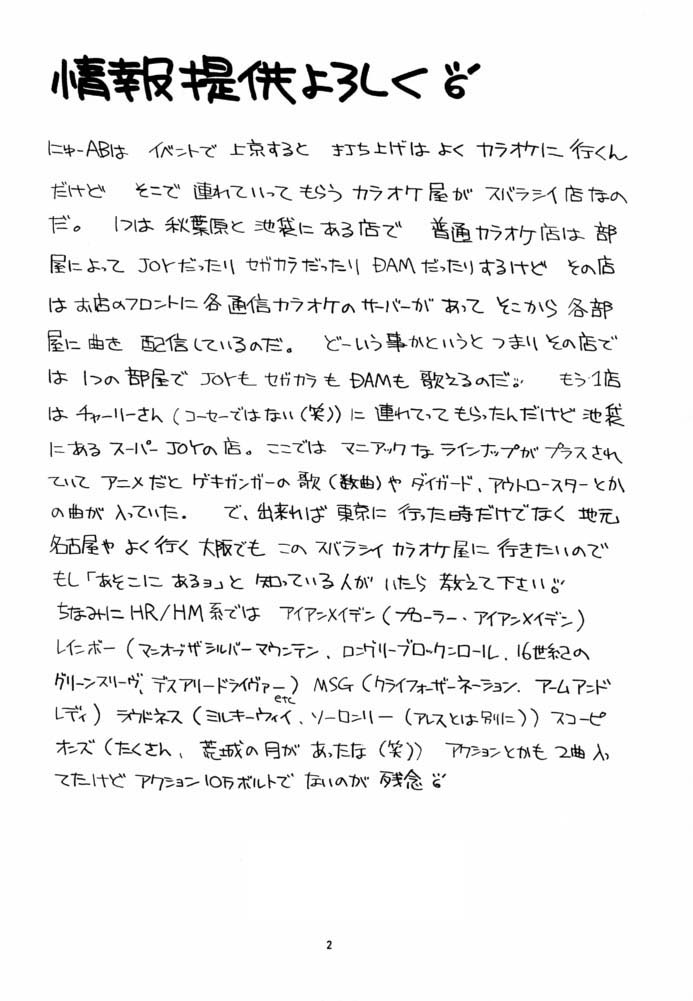 情報提供よろしく
にゅーABは イベントで 上京すると 打ち上げは よく カラオケに 行くん
だけど そこで 連れていって もらう カラオケ屋が スバラシイ店なの
だ。 1つは 秋葉原と 池袋に ある店で 普通カラオケ店は 部
屋によって JOYだったり セガカラだったり DAMだったりするけど その店
は お店のフロントに 各通信カラオケの サーバーが あって そこから 各部
屋に 曲を 配信しているのだ。 どーいう事かというと つまり その店で
は 1つの 部屋で JOYも セガカラも DAMも 歌えるのだ。 もう1店
は チャーリーさん(コーセーではない(笑))に 連れてって もらったんだけど 池袋
にある スーパーJOYの店。ここでは マニアックな ラインナップが プラスされ
ていて アニメだと ゲキガンガーの 歌(数曲)や ダイガード、アウトロースターとか
の曲が 入っていた. で、出来れば 東京に 行った時だけでなく 地元
名古屋や よく行く 大阪でも この スバラシイ カラオケ屋に 行きたいので
もし「あそこに あるョ」と 知っている人が いたら 教えて下さい
ちなみに HR/HM系では アイアンメイデン(プローラー、アイアンメイデン)
レインボー(マンオブザシルバーマウンテン、ロングリーブロックンロール、16世紀の
グリーンスリーヴ、デスアリードライヴァー etc) MSG(クライフォーザーネーション. アームアンド
レディ) ラウドネス(ミルキーウィイ、ソーロンリー(アレスとは別に)) スコーピ
オンズ(たくさん、荒城の月が あったな(笑)) アクションとかも 2曲入っ
てたけど アクション10万ボルトで ないのが 残念
2